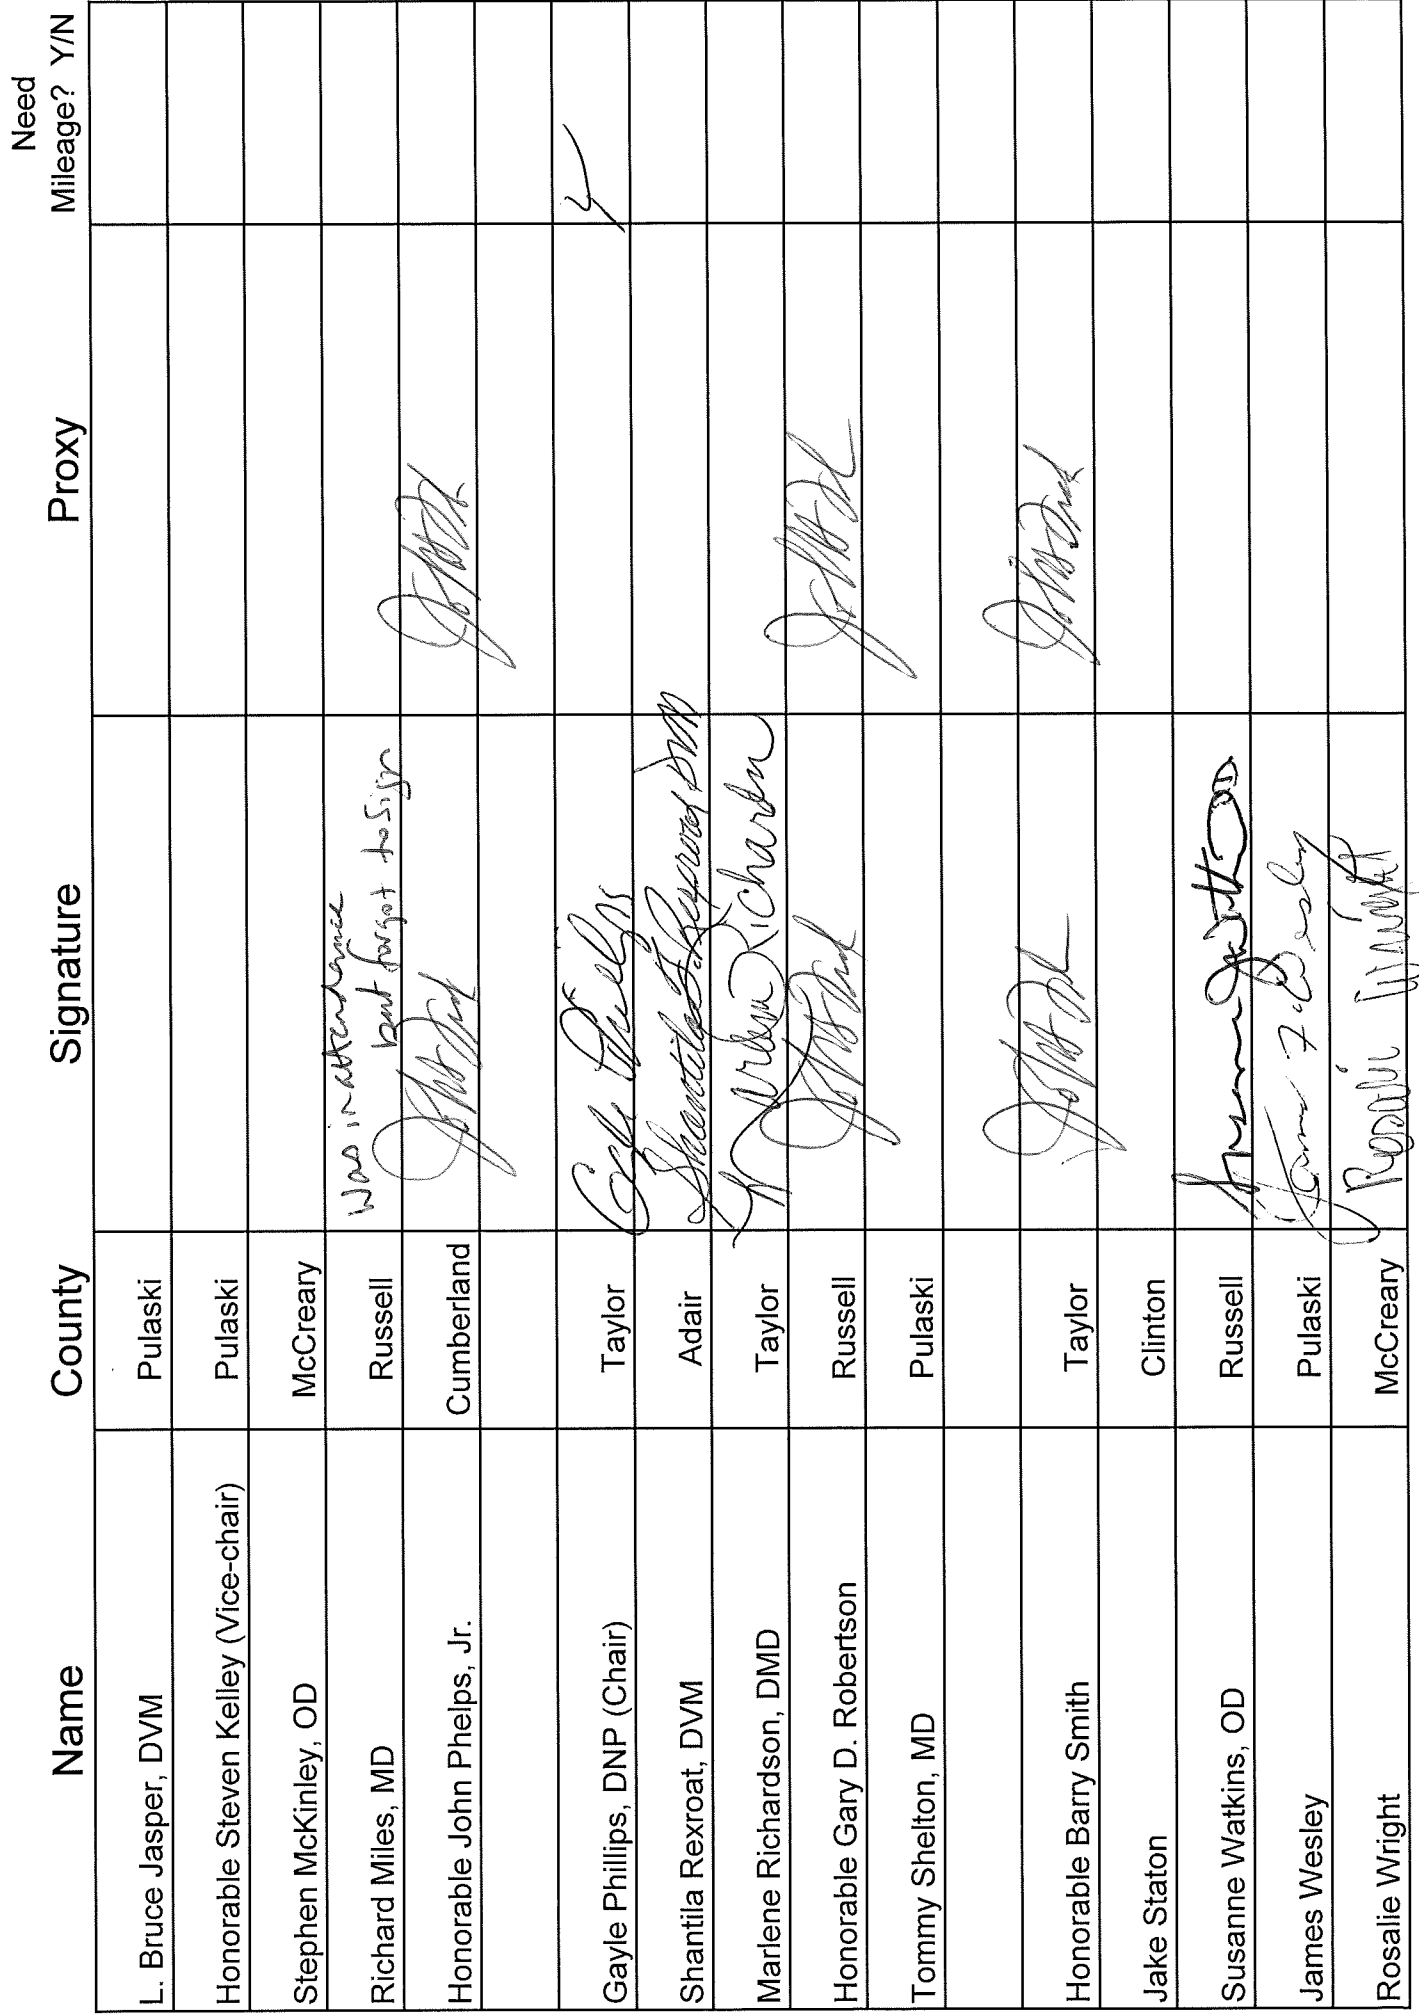 Name County Signature Proxy Need Mileage? Y/N
L. Bruce Jasper, DVM Pulaski
Honorable Steven Kelley (Vice-chair) Pulaski
Stephen McKinley, OD McCreary
Richard Miles, MD Russell Was in attendance but forgot to sign
Honorable John Phelps, Jr. Cumberland
Gayle Phillips, DNP (Chair) Taylor Gayle Phillips Y
Shantila Rexroat, DVM Adair Shantila Rexroat DVM
Marlene Richardson, DMD Taylor Marlene Richardson
Honorable Gary D. Robertson Russell
Tommy Shelton, MD Pulaski
Honorable Barry Smith Taylor
Jake Staton Clinton
Susanne Watkins, OD Russell
James Wesley Pulaski James F. Wesley
Rosalie Wright McCreary Rosalie Wright